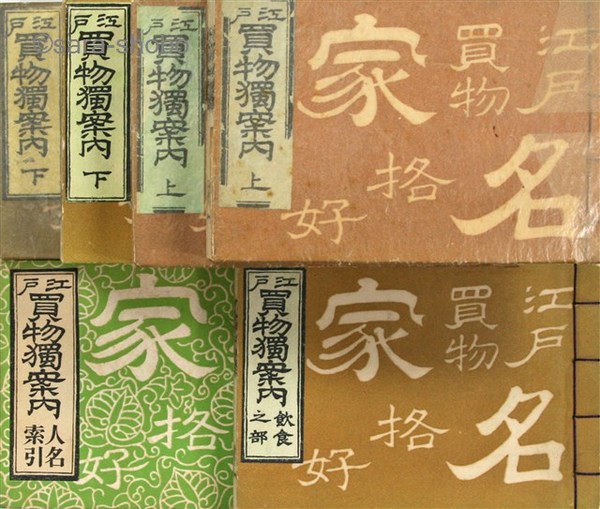 江戸
買物獨案内
下
江戸
買物獨案内
下
江戸
買物獨案内
上
江戸
買物獨案内
上
江戸
買物
名
家
格
好
江戸
買物獨案内
人名
索引
家
格
好
江戸
買物獨案内
飲食
之部
江戸
買物
名
家
格
好